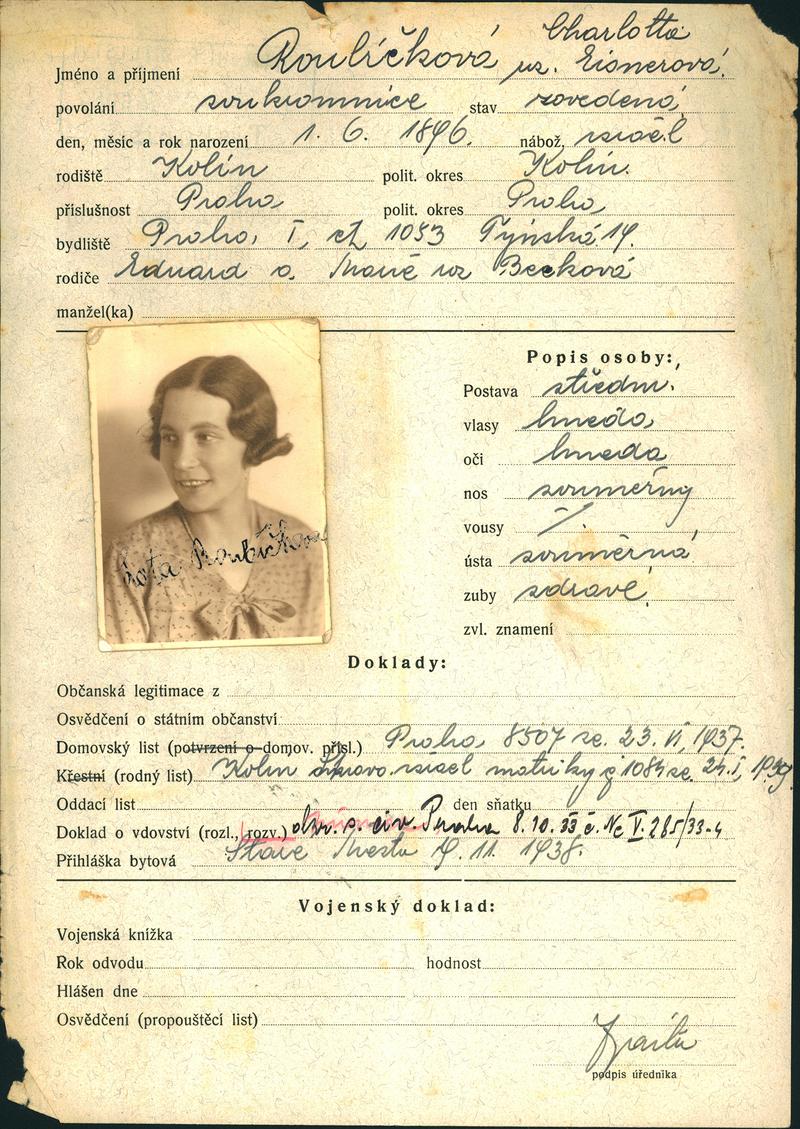 Charlotta
Jméno a příjmení Roubíčková roz. Eisnerová.
povolání soukromnice stav rozvedená
den, měsíc a rok narození 1. 6. 1896. nábož. israel
rodiště Kolín polit. okres Kolín.
příslušnost Praha polit. okres Praha
bydliště Praha, I, čp 1053 Týnská 19.
rodiče Eduard a Marie roz Becková
manžel(ka)
Popis osoby:
Postava střední.
vlasy hnědo
oči hneda
nos souměrný
vousy /.
ústa souměrná
zuby zdravé
zvl. znamení
Lota Roubíčková
Doklady:
Občanská legitimace z
Osvědčení o státním občanství
Domovský list (potvrzení o domov. přísl.) Praha 8507 ze. 23. VI, 1937.
Křestní (rodný list) Kolín israel matriky č 1084 ze. 24. I, 1939.
Oddací list den sňatku
Doklad o vdovství (rozl., rozv.) s. civ. Praha 8. 10. 33 č. Nc V. 285/33-4
Přihláška bytová Staré Mesto 9. 11. 1938.
Vojenský doklad:
Vojenská knížka
Rok odvodu hodnost
Hlášen dne
Osvědčení (propouštěcí list)
podpis úředníka